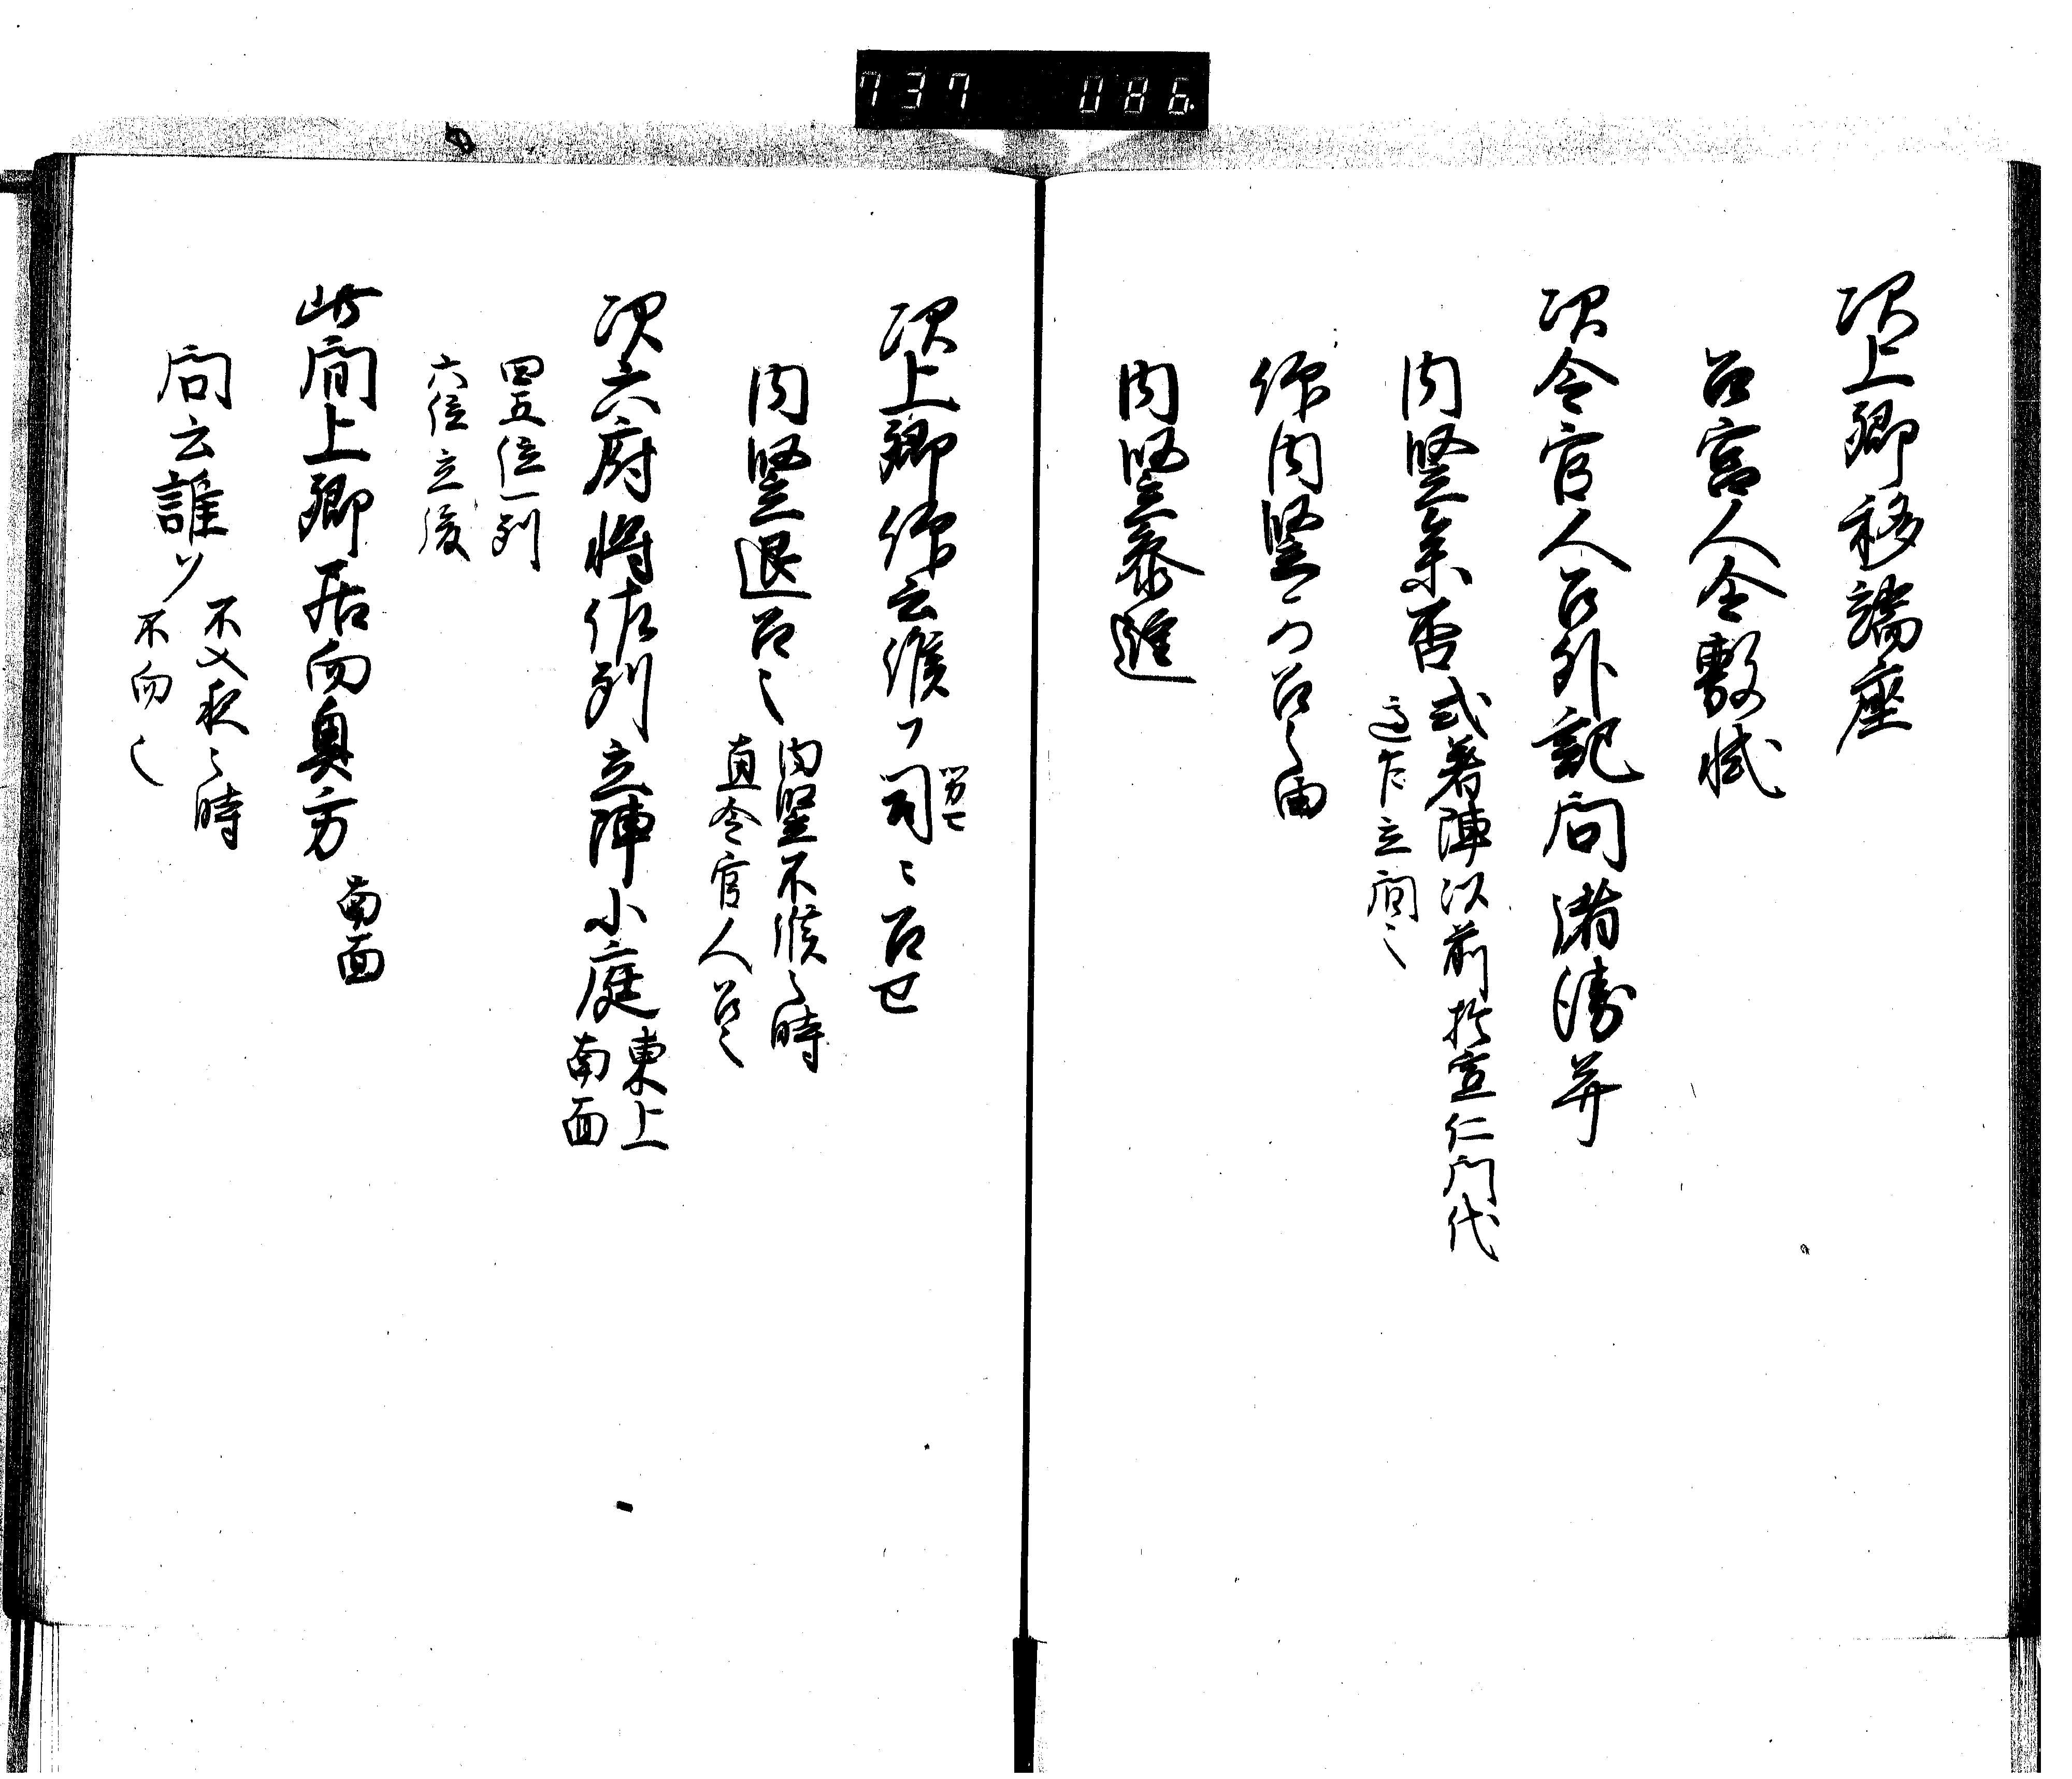 737 086
次上卿移端座
召官人令敷軾
次令官人召外記問諸衛并
内竪参否 或著陣以前於宣仁門代
乍立問之
仰内竪可召之由
内竪参進
次上卿仰云候フ司〻召せ
内竪退召之 内竪不候之時
直令官人召之
次六府将佐列立陣小庭 東上
南面
四五位一列
六位立後
此間上卿居向奥方 南面
問云誰ソ 不入夜之時
不向之